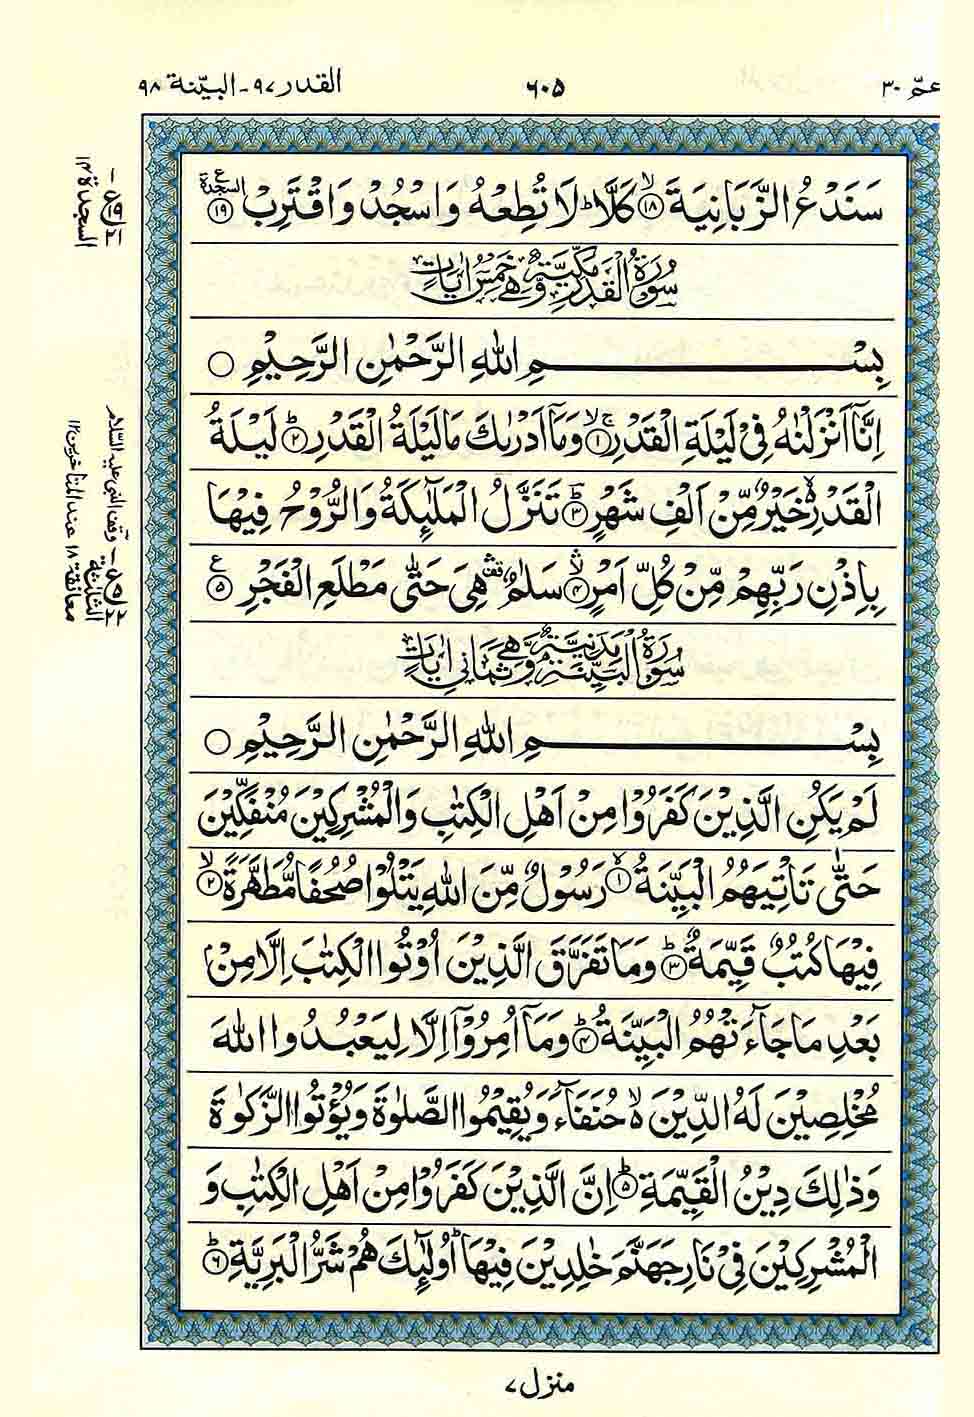 عمّ ٣٠
٦٠٥
القدر ٩٧ - البيّنة ٩٨
سَنَدْعُ الزَّبَانِيَةَ ۙ‏﴿١٨﴾ كَلَّا ؕ لَا تُطِعْهُ وَاسْجُدْ وَاقْتَرِبْ ﴿١٩﴾ السجدة ع
سُوْرَةُ الْقَدْرِ مَكِّيَّةٌ وَّهِيَ خَمْسُ اٰيَاتٍ
بِسْمِ اللّٰهِ الرَّحْمٰنِ الرَّحِيْمِ ○
اِنَّآ اَنْزَلْنٰهُ فِىْ لَيْلَةِ الْقَدْرِ ۚۖ ﴿١﴾ وَمَآ اَدْرٰىكَ مَا لَيْلَةُ الْقَدْرِؕ ﴿٢﴾ لَيْلَةُ
الْقَدْرِ ۙ خَيْرٌ مِّنْ اَلْفِ شَهْرٍؕ ﴿٣﴾ تَنَزَّلُ الْمَلٰٓئِكَةُ وَالرُّوْحُ فِيْهَا
بِاِذْنِ رَبِّهِمْ مِّنْ كُلِّ اَمْرٍ ۙۛ ﴿٤﴾ سَلٰمٌ ۛ هِىَ حَتّٰى مَطْلَعِ الْفَجْرِ ﴿٥﴾ ع
سُوْرَةُ الْبَيِّنَةِ مَدَنِيَّةٌ وَّهِيَ ثَمَانِيْ اٰيَاتٍ
بِسْمِ اللّٰهِ الرَّحْمٰنِ الرَّحِيْمِ ○
لَمْ يَكُنِ الَّذِيْنَ كَفَرُوْا مِنْ اَهْلِ الْكِتٰبِ وَالْمُشْرِكِيْنَ مُنْفَكِّيْنَ
حَتّٰى تَاْتِيَهُمُ الْبَيِّنَةُ ۙ ﴿١﴾ رَسُوْلٌ مِّنَ اللّٰهِ يَتْلُوْا صُحُفًا مُّطَهَّرَةً ۙ ﴿٢﴾
فِيْهَا كُتُبٌ قَيِّمَةٌ ؕ ﴿٣﴾ وَمَا تَفَرَّقَ الَّذِيْنَ اُوْتُوا الْكِتٰبَ اِلَّا مِنْۢ
بَعْدِ مَا جَآءَتْهُمُ الْبَيِّنَةُ ؕ ﴿٤﴾ وَمَآ اُمِرُوْۤا اِلَّا لِيَعْبُدُوا اللّٰهَ
مُخْلِصِيْنَ لَهُ الدِّيْنَ ۙ حُنَفَآءَ وَيُقِيْمُوا الصَّلٰوةَ وَيُؤْتُوا الزَّكٰوةَ
وَذٰلِكَ دِيْنُ الْقَيِّمَةِ ؕ ﴿٥﴾ اِنَّ الَّذِيْنَ كَفَرُوْا مِنْ اَهْلِ الْكِتٰبِ وَ
الْمُشْرِكِيْنَ فِىْ نَارِ جَهَنَّمَ خٰلِدِيْنَ فِيْهَا ؕ اُولٰٓئِكَ هُمْ شَرُّ الْبَرِيَّةِ ؕ ﴿٦﴾
السجدة ١٤
وقف النبى عليه السّلام
معانقة ١٨ عند المتاخرين ١٢
منزل ٧